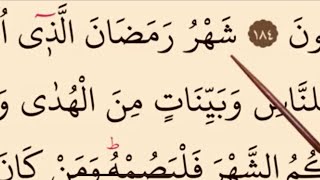 ونَ ١٨٤ شَهْرُ رَمَضَانَ الَّذِىٓ اُ
لِلنَّاسِ وَبَيِّنَاتٍ مِنَ الْهُدٰى وَ
كُمُ الشَّهْرَ فَلْيَصُمْهُ وَمَنْ كَانَ